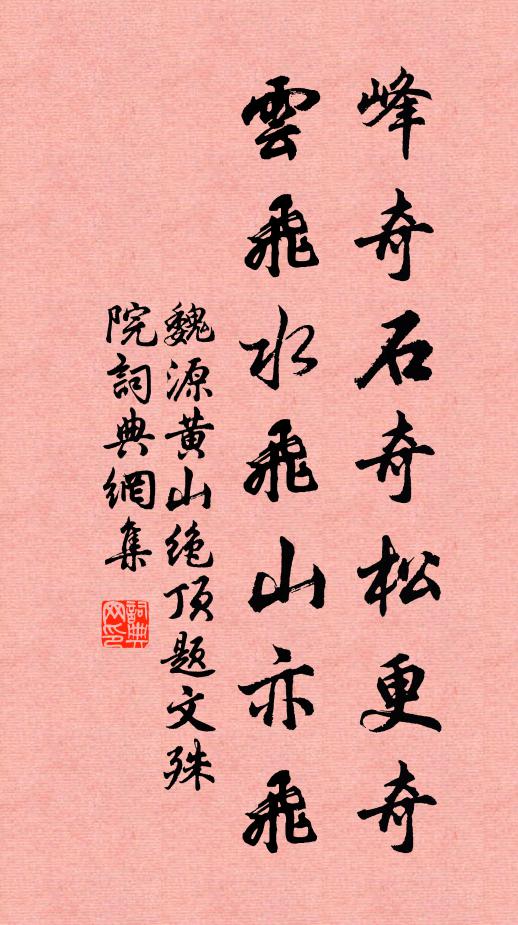 峰奇石奇松更奇
雲飛水飛山亦飛
魏源黄山绝頂题文殊
院詞典網集
詞典网印